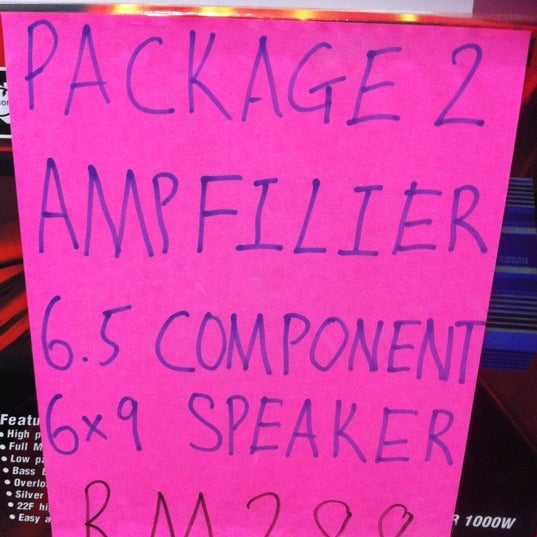 PACKAGE 2
AMPFILIER
6.5 COMPONENT
6x9 SPEAKER
Featu
• High p
• Full M
• Low pa
• Bass
• Overlo
• Silver
• 22F hi
• Easy a
R 1000W